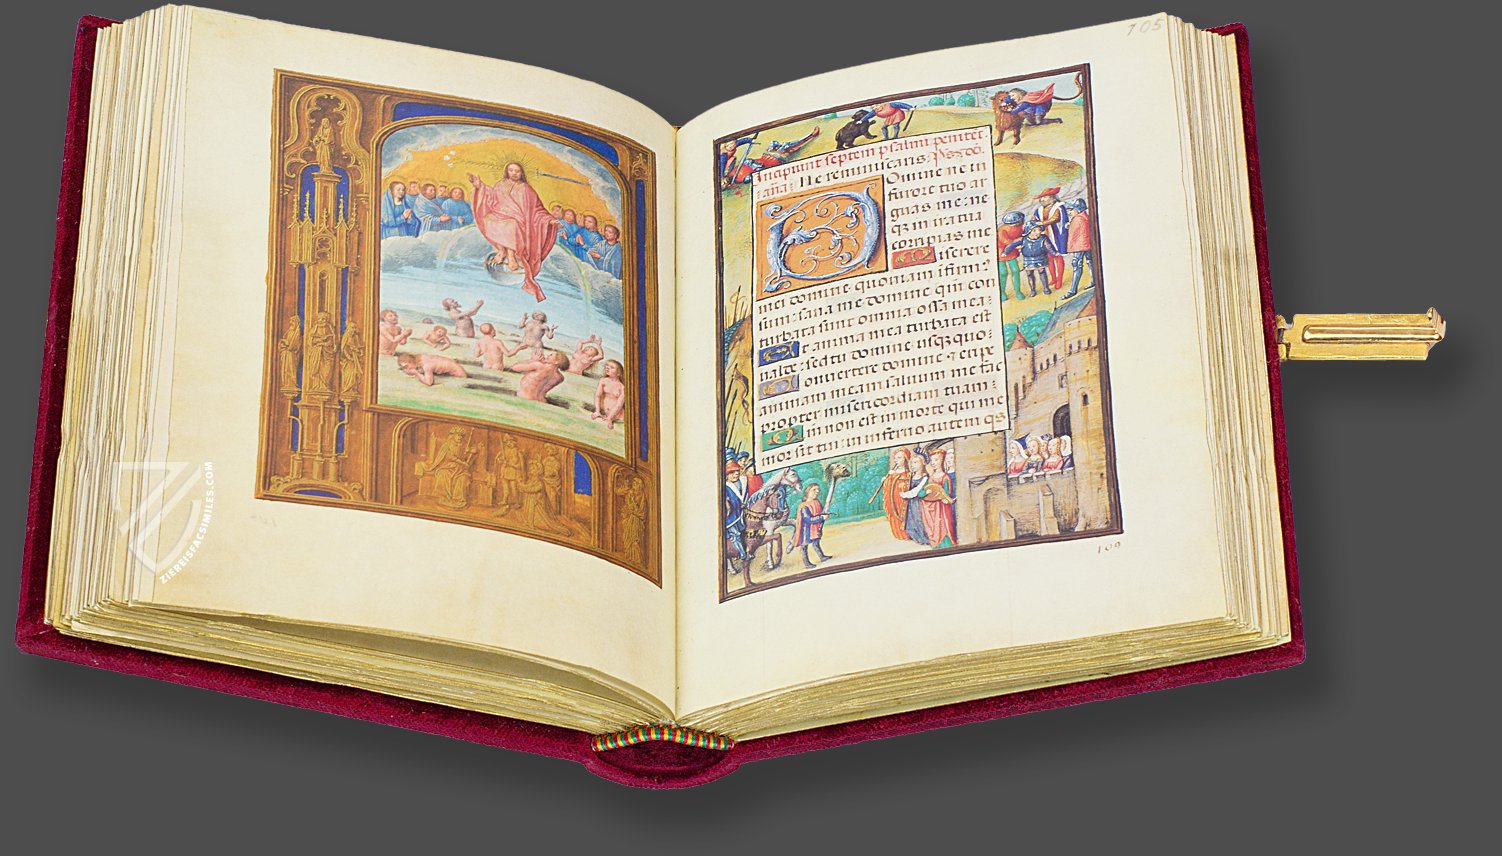 105
Incipiunt septem psalmi penitẽt.
añã: Ne reminiscaris. Ps. dd.
Domine ne in
furore tuo ar
guas me: ne
qz in ira tua
corripias me
Miserere
mei domine quoniam ifirmꝰ
sum: sana me domine qm̃ con
turbata sunt omnia ossa mea:
Et anima mea turbata est
valde: sed tu domine usqzquo.
Convertere domine ⁊ eripe
animam meam salvum me fac
propter misericordiam tuam:
Qm̃ non est in morte qui me
mor sit tui: in inferno autem qs
109
ZIEREISFACSIMILES.COM